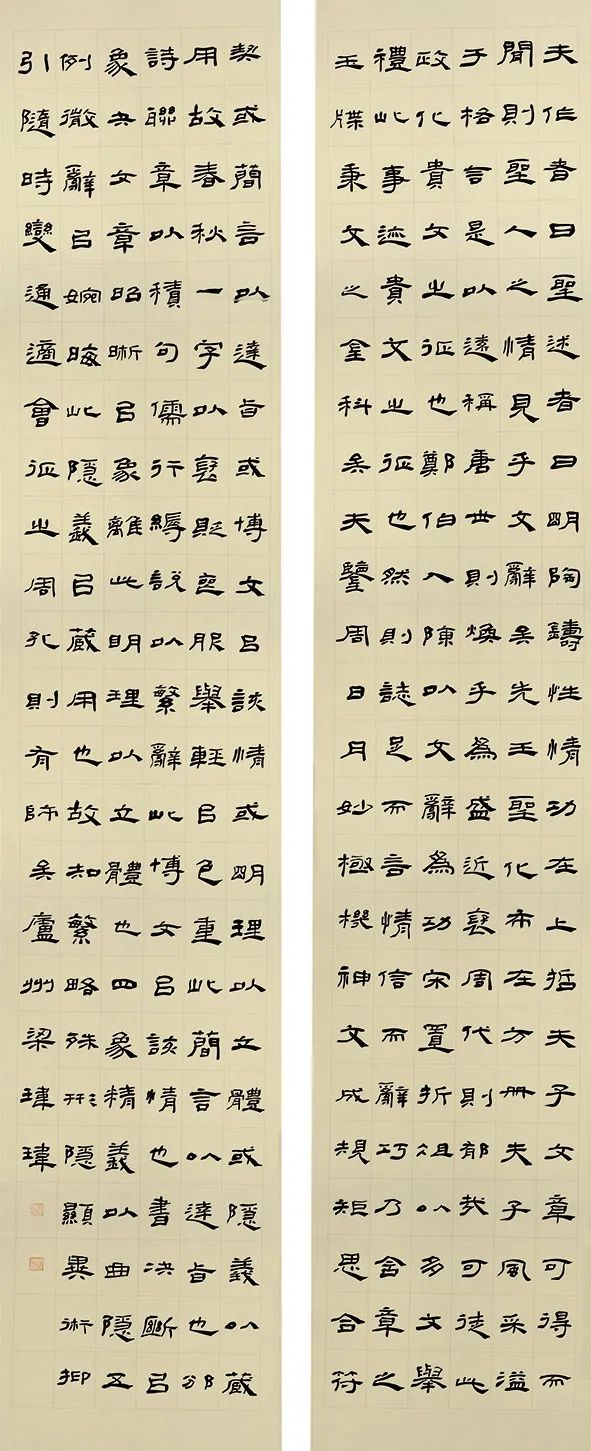 夫作者曰聖述者曰明陶鑄性情功在上哲夫子文章可得而
聞則聖人之情見乎文辭矣先王聖化布在方冊夫子風采溢
于格言是以遠稱唐世則煥乎為盛近褒周代則郁哉可徒此
政化貴文之征也鄭伯入陳以文辭為功宋置折俎以多文舉
禮此事迹貴文之征也然則誌足而言情信而辭巧乃含章之
玉牒秉文之金科矣夫鑒周日月妙極機神文成規矩思合符
契或簡言以達旨或博文以該情或明理以立體或隱義以藏
用故春秋一字以褒貶喪服舉輕以包重此簡言以達旨也邠
詩聯章以積句儒行縟說以繁辭此博文以該情也書決斷以
象夬文章昭晰以象離此明理以立體也四象精義以曲隱五
例微辭以婉晦此隱義以藏用也故知繁略殊形隱顯異術抑
引隨時變通適會征之周孔則有師矣廬州梁瑋瑋